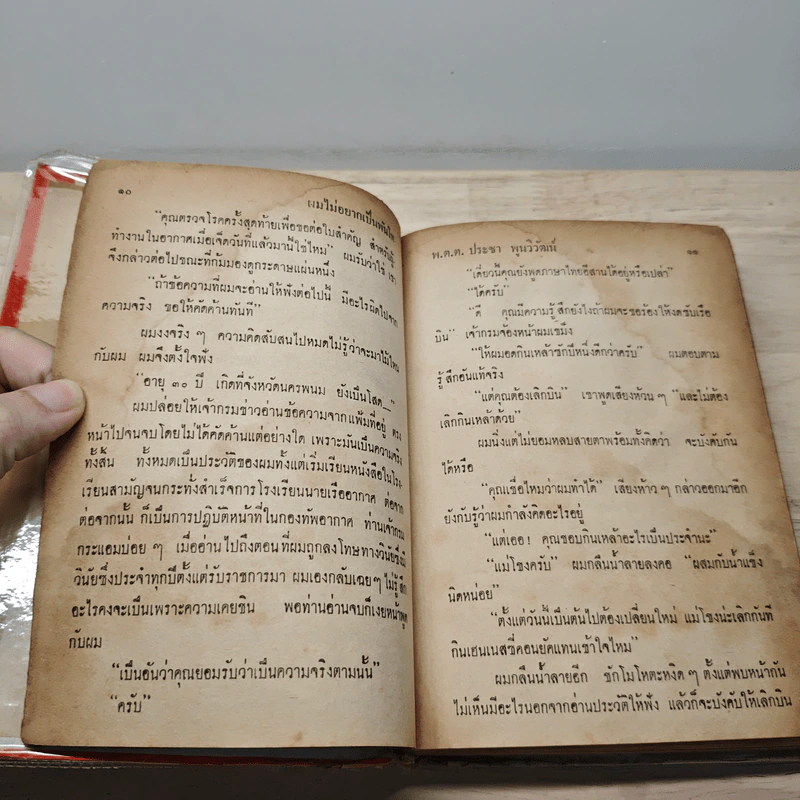 ๑๐
ผมไม่อยากเป็นพันโท
"คุณตรวจโรคครั้งสุดท้ายเพื่อขอต่อใบสำคัญ สำหรับผู้
ทำงานในอากาศเมื่อเจ็ดวันที่แล้วมานี้ใช่ไหม" ผมรับว่าใช่ เขา
จึงกล่าวต่อไปขณะที่ก้มมองดูกระดาษแผ่นหนึ่ง
"ถ้าข้อความที่ผมจะอ่านให้ฟังต่อไปนี้ มีอะไรผิดไปจาก
ความจริง ขอให้คัดค้านทันที"
ผมงงจริง ๆ ความคิดสับสนไปหมดไม่รู้ว่าจะมาไม้ไหน
กับผม ผมจึงตั้งใจฟัง
"อายุ ๓๐ ปี เกิดที่จังหวัดนครพนม ยังเป็นโสด...."
ผมปล่อยให้เจ้ากรมข่าวอ่านข้อความจากแฟ้มที่อยู่ ตรง
หน้าไปจนจบโดยไม่ได้คัดค้านแต่อย่างใด เพราะมันเป็นความจริง
ทั้งสิ้น ทั้งหมดเป็นประวัติของผมทั้งแต่เริ่มเรียนหนังสือในโรง
เรียนสามัญจนกระทั่งสำเร็จการโรงเรียนนายเรืออากาศ ต่อจาก
ต่อจากนั้น ก็เป็นการปฏิบัติหน้าที่ในกองทัพอากาศ ท่านเจ้ากรม
กระแอมบ่อย ๆ เมื่ออ่านไปถึงตอนที่ผมถูกลงโทษทางวินัยซึ่งมี
วินัยซึ่งประจำทุกปีตั้งแต่รับราชการมา ผมเองกลับเฉย ๆ ไม่รู้สึก
อะไรคงจะเป็นเพราะความเคยชิน พอท่านอ่านจบก็เงยหน้าพูด
กับผม
"เป็นอันว่าคุณยอมรับว่าเป็นความจริงตามนั้น"
"ครับ"
พ.ต.ต. ประชา พูนวิวัฒน์
๑๑
"เดี๋ยวนี้คุณยังพูดภาษาไทยอีสานได้อยู่หรือเปล่า"
"ได้ครับ"
"ดี คุณมีความรู้สึกยังไงถ้าผมจะขอร้องให้งดขับเรือ
บิน" เจ้ากรมจ้องหน้าผมเขม็ง
"ให้ผมอดกินเหล้าซักปีหนึ่งดีกว่าครับ" ผมตอบตาม
รู้สึกอันแท้จริง
"แต่คุณต้องเลิกบิน" เขาพูดเสียงห้วน ๆ "และไม่ต้อง
เลิกกินเหล้าด้วย"
ผมนิ่งแต่ไม่ยอมหลบสายตาพร้อมทั้งคิดว่า จะบังคับกัน
ได้หรือ
"คุณเชื่อไหมว่าผมทำได้" เสียงห้าว ๆ กล่าวออกมาอีก
ยังกับรู้ว่าผมกำลังคิดอะไรอยู่
"แต่เออ ! คุณชอบกินเหล้าอะไรเป็นประจำนะ"
"แม่โขงครับ" ผมกลืนน้ำลายลงคอ "ผสมกับน้ำแข็ง
นิดหน่อย"
"ตั้งแต่วันนี้เป็นต้นไปต้องเปลี่ยนใหม่ แม่โขงน่ะเลิกกันที
กินเฮนเนสซี่คอนยัคแทนเข้าใจไหม"
ผมกลืนน้ำลายอีก ชักโมโหตะหงิด ๆ ตั้งแต่พบหน้ากัน
ไม่เห็นมีอะไรนอกจากอ่านประวัติให้ฟัง แล้วก็จะบังคับให้เลิกบิน